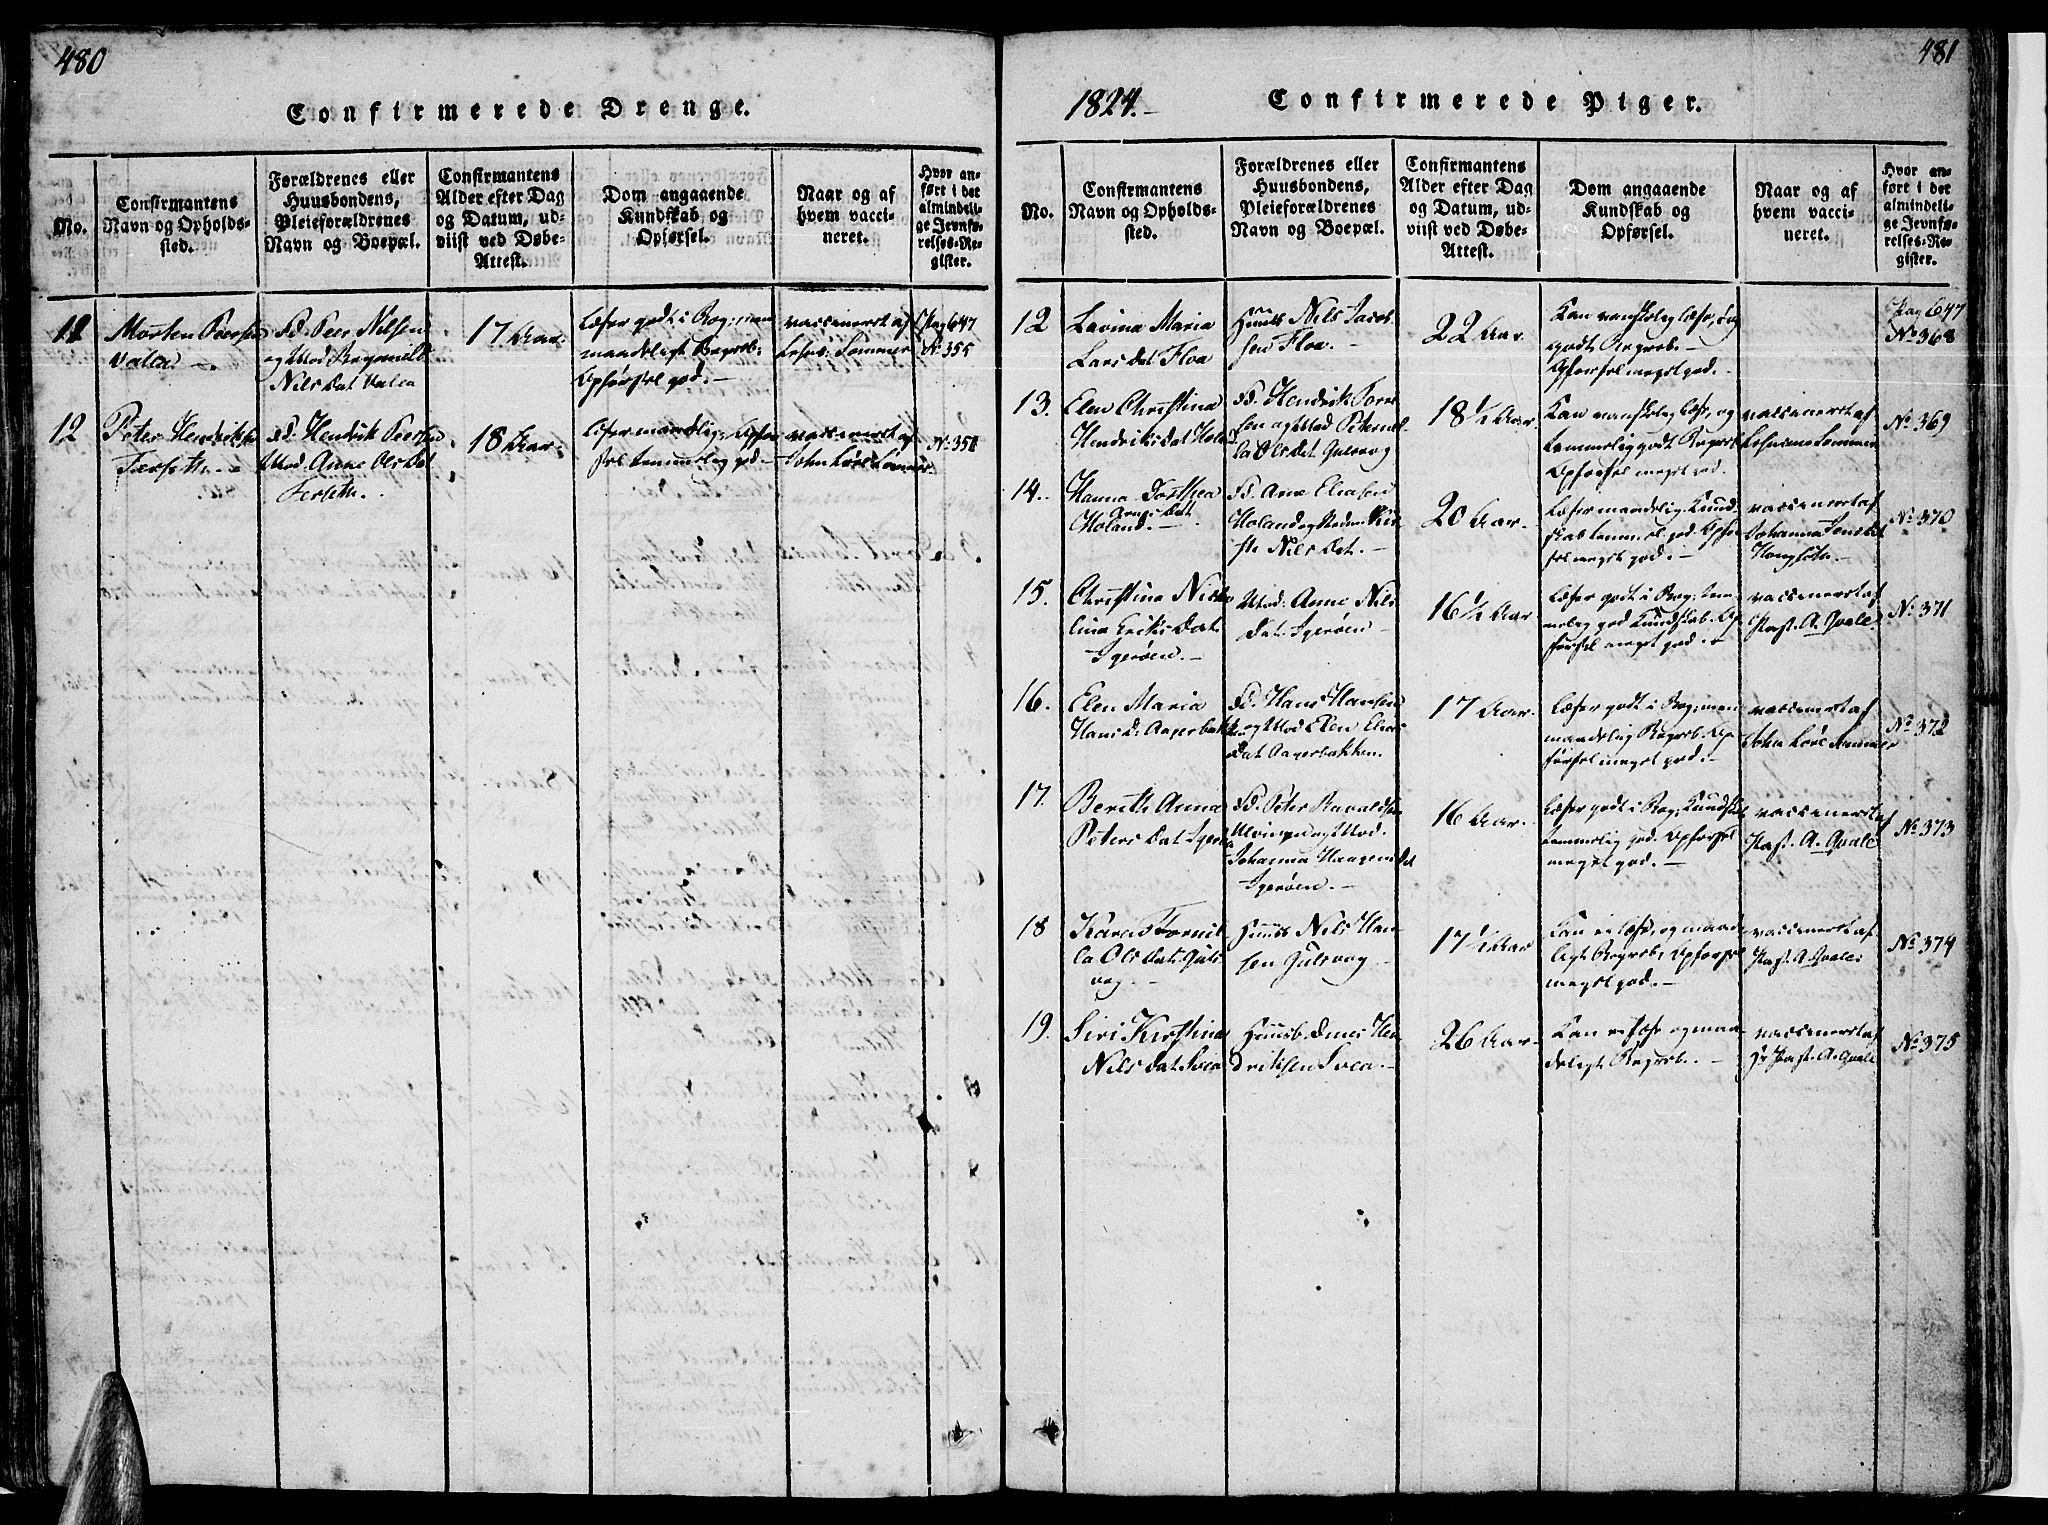 480
Confirmerede Drenge.
No.
Confirmantens
Navn og Opholds-
sted.
Forældrenes eller
Huusbondens,
Pleieforældrenes
Navn og Boepæl.
Confirmantens
Alder efter Dag
og Datum, ud-
viist ved Døbe-
Attest.
Dom angaaende
Kundskab og
Opførsel.
Naar og af
hvem vacci-
neret.
Hvor an-
ført i det
almindeli-
ge Jevnfø-
relses-Re-
gister.
11
Morten Peersen
Valen
Fd. Peer Nilsen
og Mod. Ragnild
Nils Dat Valen
17 Aar.
Læser godt i Bog; men
maadeligt Begreb.
Opførsel god.
vaccineret af
Sommer
Pag 647
No 355
12
Peter Hendriksen
Fd. Hendrik Peersen
Mod. Anne Ols Dat
18 Aar.
Læser maadelig; Opfør
sel temmelig god.
vaccineret af
No 356
481
1824.
Confirmerede Piger.
No.
Confirmantens
Navn og Opholds-
sted.
Forældrenes eller
Huusbondens,
Pleieforældrenes
Navn og Boepæl.
Confirmantens
Alder efter Dag
og Datum, ud-
viist ved Døbe-
Attest.
Dom angaaende
Kundskab og
Opførsel.
Naar og af
hvem vacci-
neret.
Hvor an-
ført i det
almindeli-
ge Jevnfø-
relses-Re-
gister.
12
Lavina Maria
Lars Dat Floa
Huusb Nils Jacob
sen Floa.
22 Aar.
Kan vanskelig læse, dog
godt Begreb.
Opførsel meget god.
Pag 647
No 368
13.
Elen Christina
Hendriks Dat
Fd. Hendrik Tore
sen og Mod Peternel
la Ols Dat Gulsvog
18 1/2 Aar.
Kan vanskelig læse, og
temmelig godt Begreb.
Opførsel meget god.
vaccineret af
No 369
14.
Hanna Dorthea
Arnes Dat
Holand.
Fd. Arne Eliasen
Holand og Moder Kir
ste Nils Dat.
20 Aar.
Læser maadelig. Kund
skab temmel. god. Opfør
sel meget god.
vaccineret af
Johanna Jens Dat
No 370
15.
Christina Niko
lina Eriks Dat.
Igerøen.
Mod: Anne Nils
Dat. Igerøen
16 1/2 Aar.
Læser godt i Bog; tem
melig god Kundskab. Op
førsel meget god.
vaccineret af
Past. A. Qvale
No 371
16.
Elen Maria
Hans D. Aagerbak
Fd. Hans Hansen
og Mod Elen Elias
Dat Aagerbakken.
17 Aar.
Læser godt i Bog; men
maadelig Begreb. Op
førsel meget god.
vaccineret af
No 372
17.
Berith Anna
Peters Dat Igerø
Fd. Peter Havaldsen
Ulvingen og Mod.
Johanna Haagens Dat
Igerøen.
16 Aar.
Læser godt i Bog; Kundskab
temmelig god. Opførsel
meget god.
vaccineret af
Past. A. Qvale
No 373
18
Karen Pernil
la Ols Dat. Guls
vog
Huusb Nils Han
sen Gulsvog
17 1/2 Aar
Kan ei læse, og maade
ligt Begreb. Opførsel
meget god.
vaccineret af
Past. A. Qvale
No 374
19.
Siri Kirstina
Nils Dat Svea
Huusb. Enes Hen
driksen Svea.
26 Aar
Kan ei læse og maa
deligt Begreb.
vaccineret af
Hr Past. A. Qvale
No 375